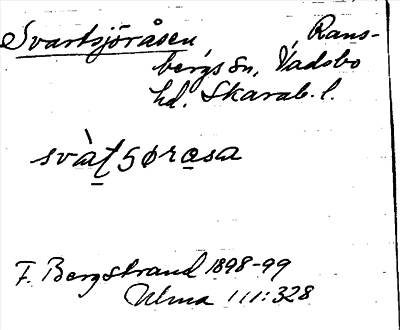 Svartsjöråsen, Rans-
bergs sn, Vadsbo
hd, Skarab. l.
svàt̠ʂørasa
F. Bergstrand 1898-99
Ulma 111:328